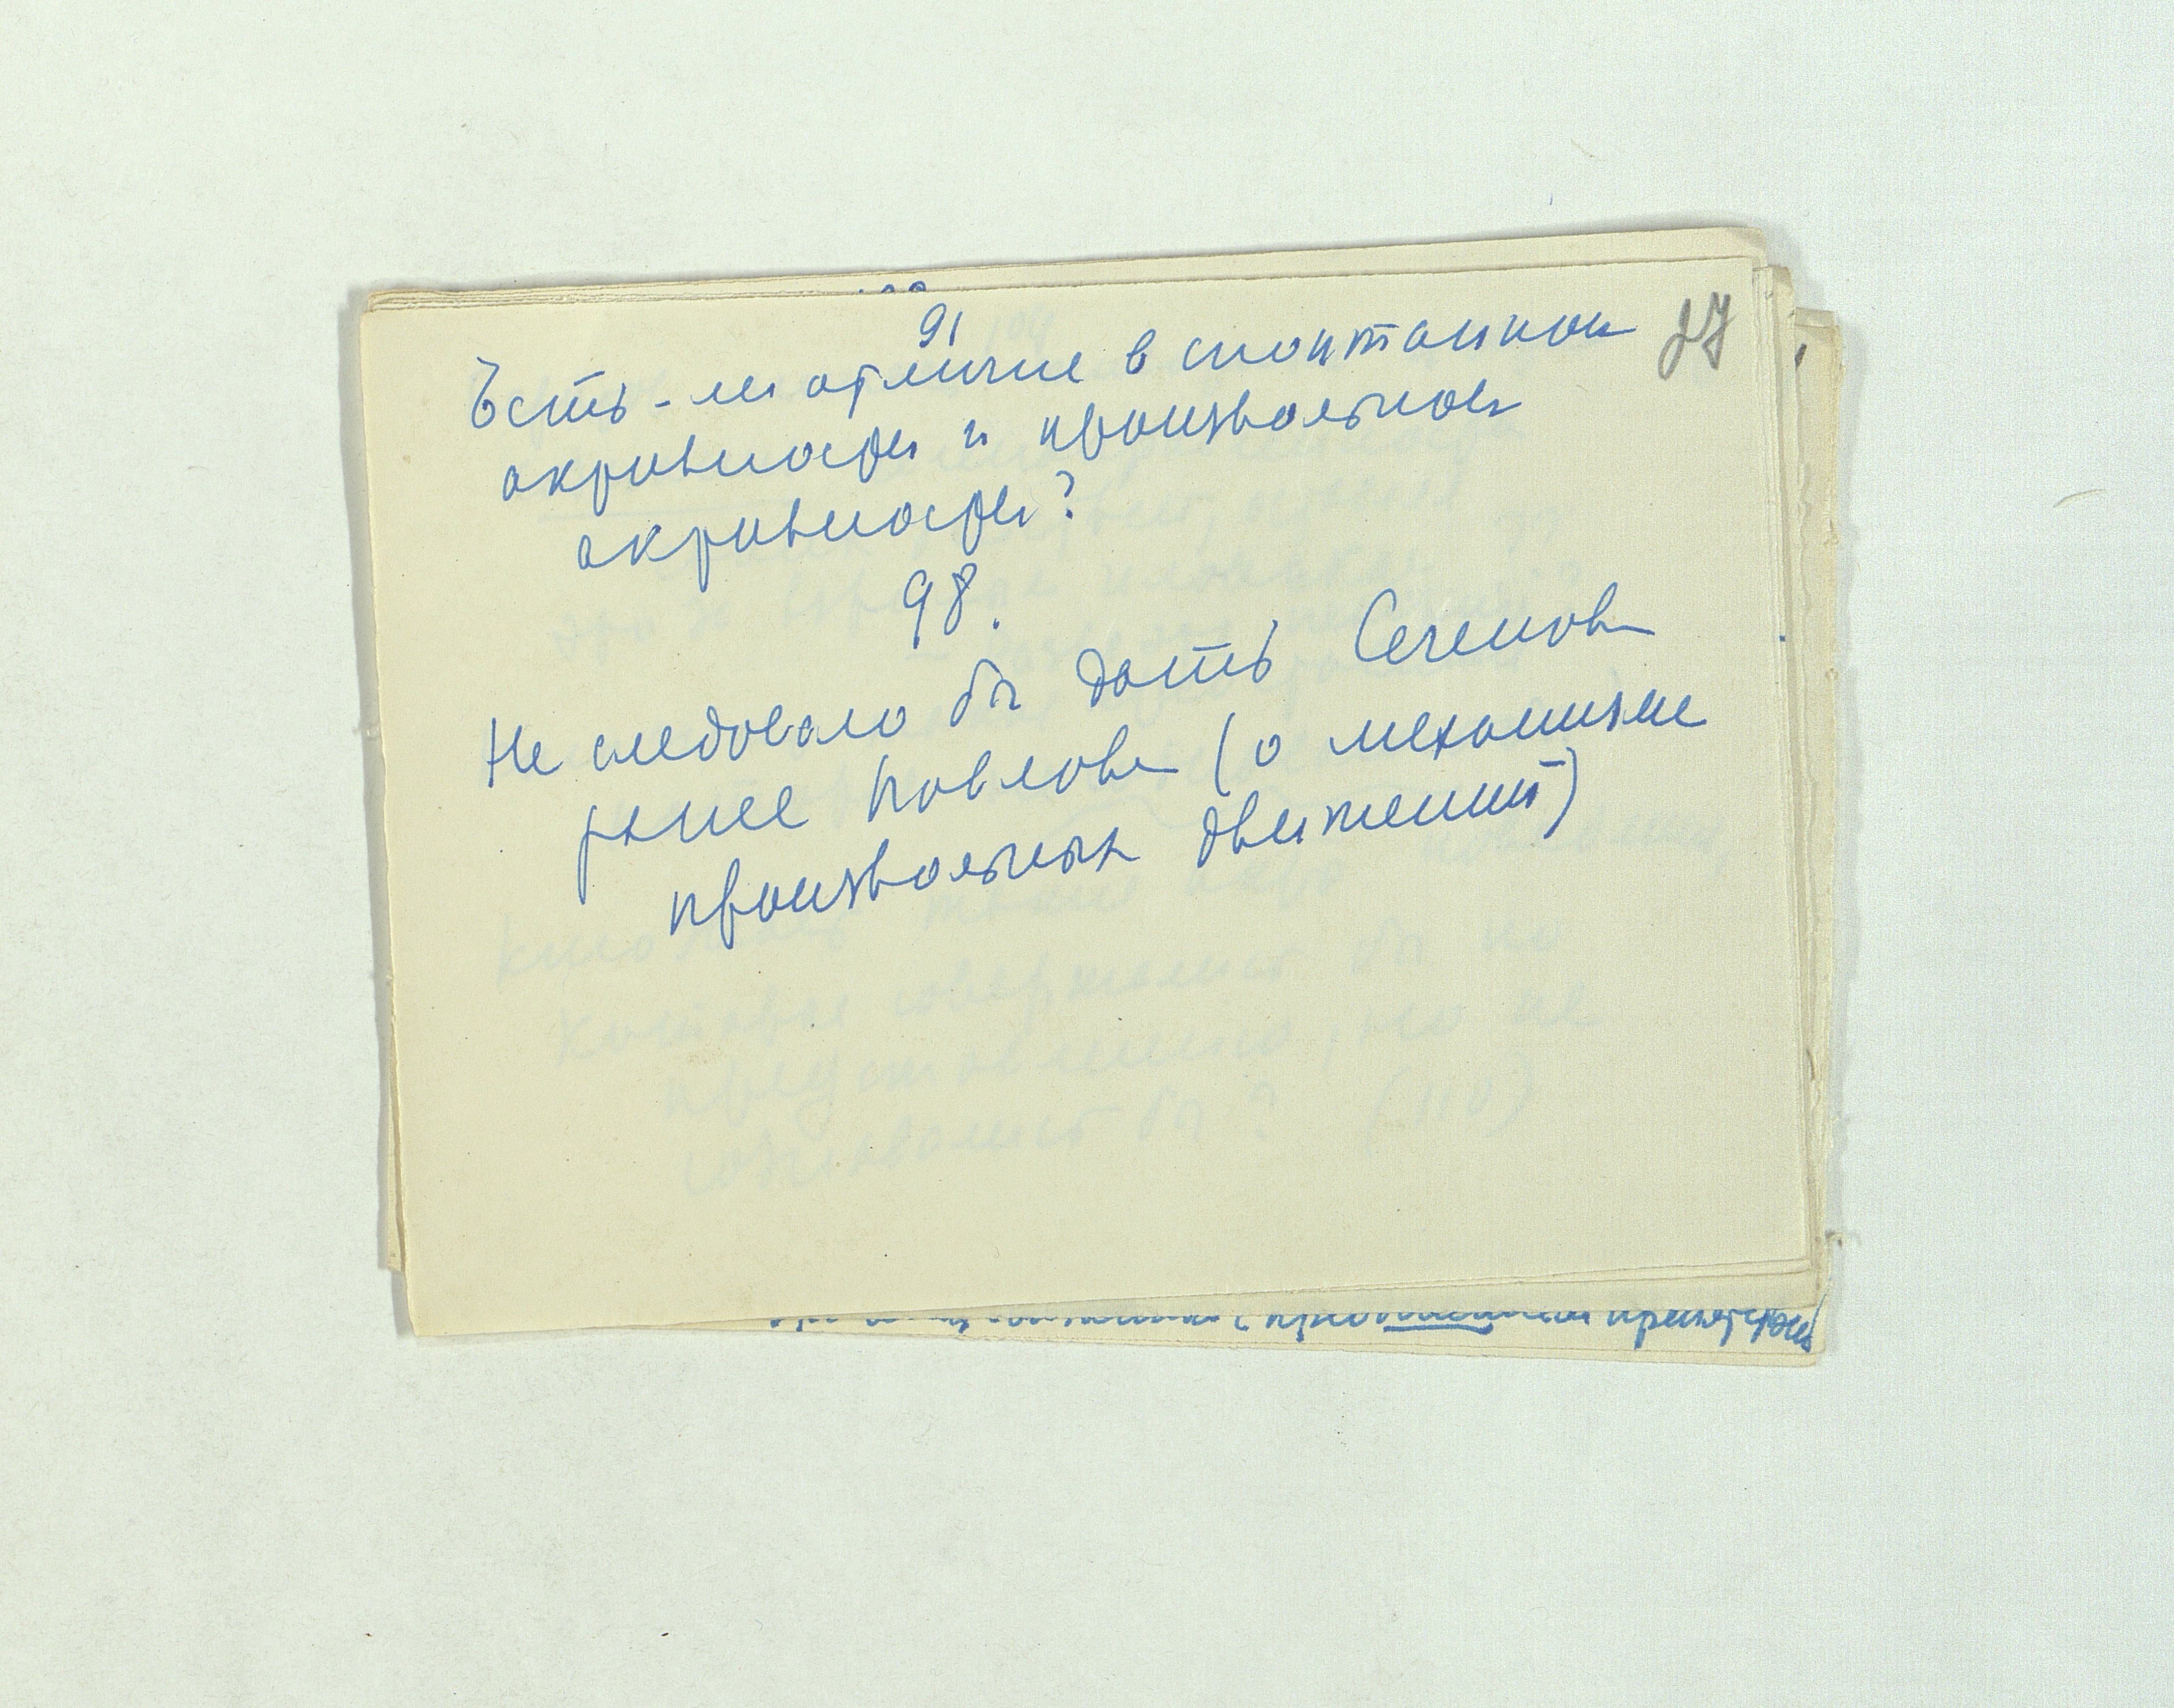 27
91
Есть-ли отличие в спонтанной
активности и произвольной
активности?
98.
Не следовало бы дать Сеченова
ранее Павлова (о механизме
произвольных движений)